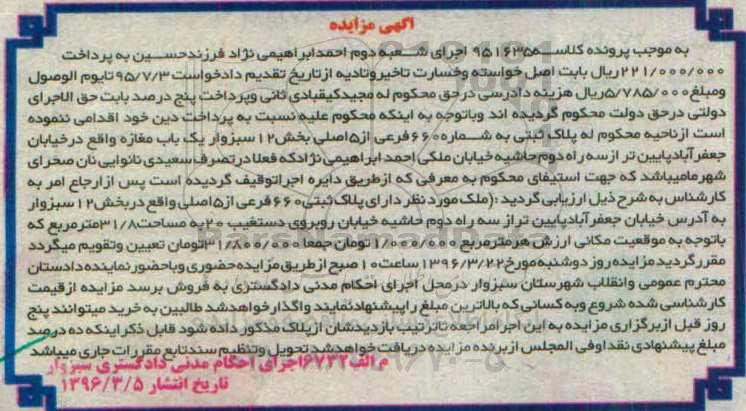 آگهی مزایده
به موجب پرونده کلاسه ۹۵۱۶۳۵ اجرای شعبه دوم احمدابراهیمی نژاد فرزندحسین به پرداخت
۲۲۱/۰۰۰/۰۰۰ریال بابت اصل خواسته وخسارت تاخیروتادیه ازتاریخ تقدیم دادخواست ۹۵/۷/۳ تایوم الوصول
ومبلغ۵/۷۸۵/۰۰۰ریال هزینه دادرسی درحق محکوم له مجیدکیقبادی ثانی وپرداخت پنج درصد بابت حق الاجرای
دولتی درحق دولت محکوم گردیده اند وباتوجه به اینکه محکوم علیه نسبت به پرداخت دین خود اقدامی ننموده
است ازناحیه محکوم له پلاک ثبتی به شماره۶۶۰فرعی از۵اصلی بخش۱۲ سبزوار یک باب مغازه واقع درخیابان
جعفرآبادپایین تر ازسه راه دوم حاشیه خیابان ملکی احمد ابراهیمی نژادکه فعلا درتصرف سعیدی نانوایی نان صحرای
شهرمامیباشد که جهت استیفای محکوم به معرفی که ازطریق دایره اجراتوقیف گردیده است پس ازارجاع امر به
کارشناس به شرح ذیل ارزیابی گردید :(ملک مورد نظر دارای پلاک ثبتی۶۶۰فرعی از۵اصلی واقع دربخش۱۲سبزوار
به آدرس خیابان جعفرآبادپایین تراز سه راه دوم حاشیه خیابان روبروی دستغیب ۲۰ به مساحت۳۱/۸مترمربع که
باتوجه به موقعیت مکانی ارزش هرمترمربع ۱/۰۰۰/۰۰۰ تومان جمعا ۳۱/۸۰۰/۰۰۰تومان تعیین وتقویم میگردد
مقررگردید مزایده روز دوشنبه مورخ۱۳۹۶/۳/۲۲ ساعت۱۰ صبح ازطریق مزایده حضوری وباحضورنماینده دادستان
محترم عمومی وانقلاب شهرستان سبزوار درمحل اجرای احکام مدنی دادگستری به فروش برسد مزایده ازقیمت
کارشناسی شده شروع وبه کسانی که بالاترین مبلغ راپیشنهادنمایند واگذارخواهدشد طالبین به خرید میتوانند پنج
روز قبل ازبرگزاری مزایده به این اجرامراجعه تاترتیب بازدیدشان ازپلاک مذکور داده شود قابل ذکراینکه ده درصد
مبلغ پیشنهادی نقداوفی المجلس ازبرنده مزایده دریافت خواهدشد تحویل وتنظیم سندتابع مقررات جاری میباشد
م الف۶۷۳۲اجرای احکام مدنی دادگستری سبزوار
تاریخ انتشار ۱۳۹۶/۳/۵